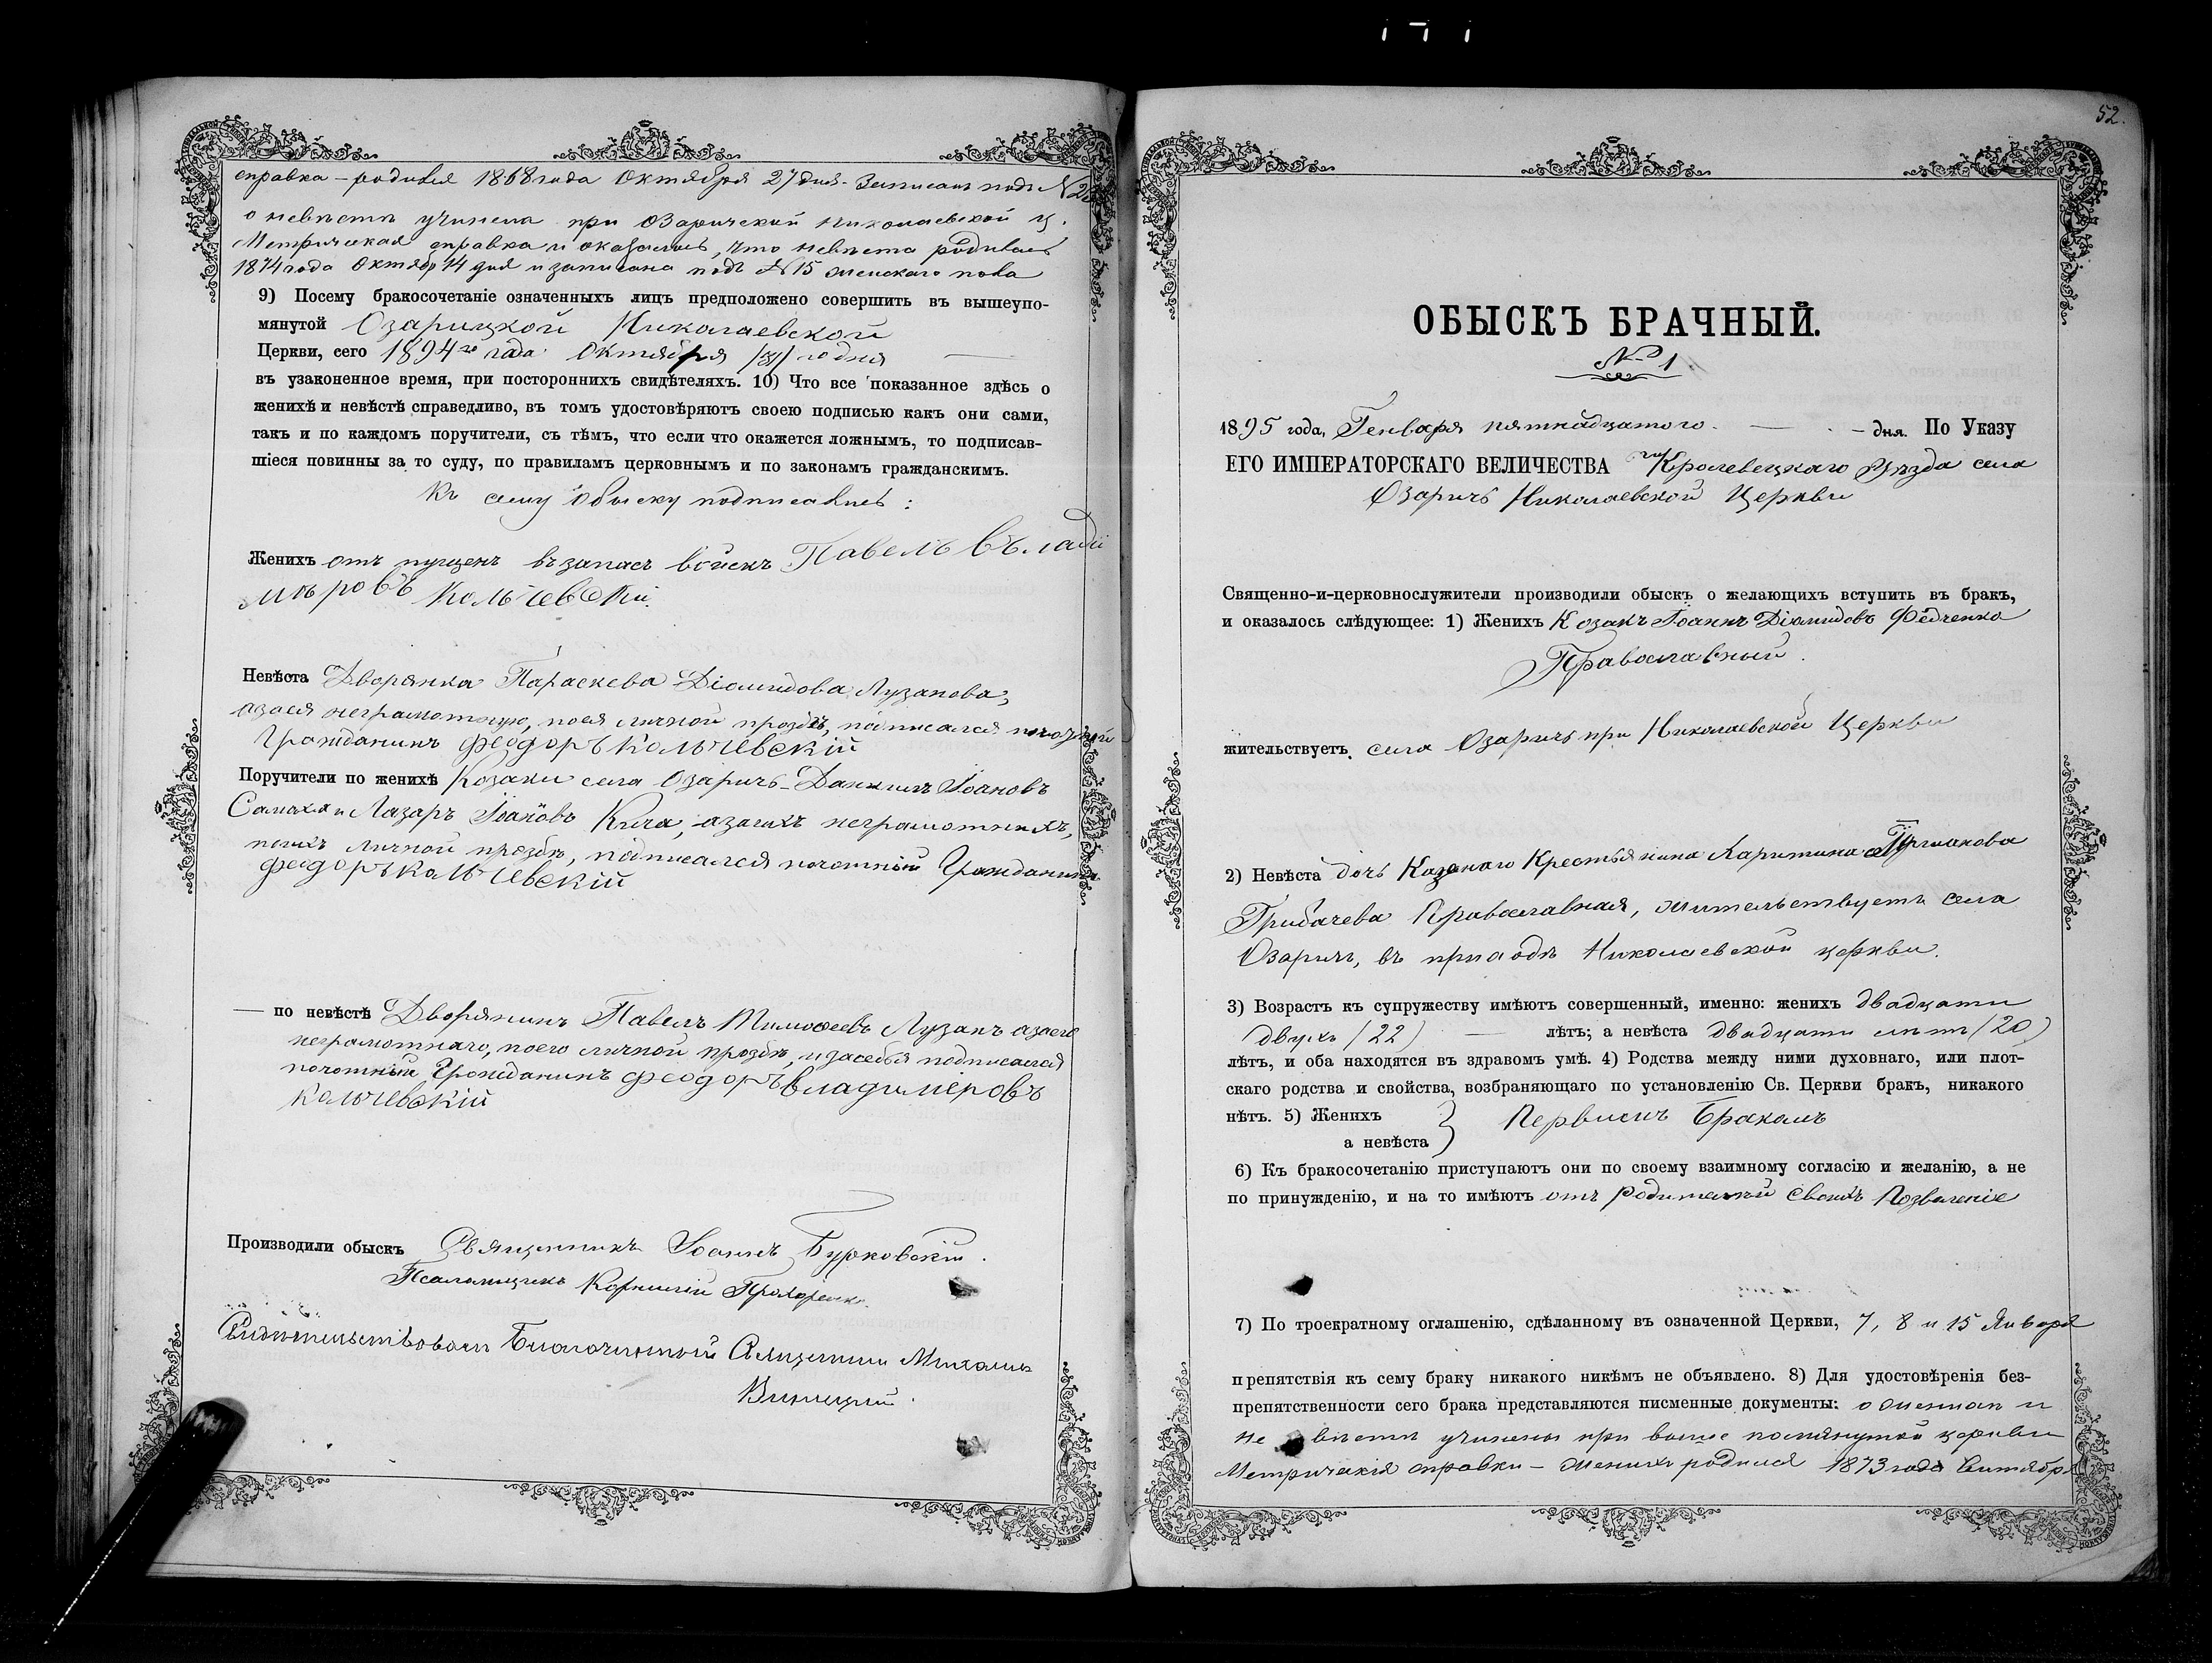 справка – родился 1868 года Октября 27 дня. Записанъ подъ №
о невѣстѣ учинена при Озаричской Николаевской ц.
Метрическая справка и оказалось, что невѣста родилась
1874 года Октябр 14 дня и записана подъ №15 женскаго пола
9) Посему бракосочетаніе означенныхъ лицъ предположено совершить въ вышеупо-
мянутой Озарицкой Николаевской
Церкви, сего 1894 го года Октября го дня
въ узаконенное время, при постороннихъ свидѣтеляхъ. 10) Что все показанное здѣсь о
женихѣ и невѣстѣ справедливо, въ томъ удостовѣряютъ своею подписью какъ они сами,
такъ и по каждомъ поручители, съ тѣмъ, что если что окажется ложнымъ, то подписав-
шіеся повинны за то суду, по правиламъ церковнымъ и по законамъ гражданскимъ.
Къ сему обыску подписались:
Женихъ отъ пущенъ въ запасъ войскъ Павелъ Влади
мѣровъ Кольчевскій.
Невѣста Дворянка Параскева Діомидова Лузанова,
азаея неграмотную, поея личной прозбѣ, подписался
Гражданинъ Феодоръ Кольчевскій
Поручители по женихѣ Козаки села Озаричъ – Даніилъ Іоановъ
и Лазаръ Іоановъ Кича, азаихъ неграмотныхъ,
поихъ личной прозбѣ, подписался почотный Гражданинъ
Феодоръ Кольчевскій
— по невѣстѣ Дворянинъ Павелъ Тимоѳеевъ Лузанъ азаего
неграмотнаго, поего личной прозбѣ, и засебя подписался
почотный Гражданинъ Феодоръ Владиміровъ
Кольчевскій
Производили обыскъ Священникъ Іоаннъ Бурковскій.
Псаломщикъ Корнилій
Свидѣтельствовалъ Благочинный Священникъ Михаилъ
Виницкій.
52.
ОБЫСКЪ БРАЧНЫЙ.
№ 1
1895 года, Генваря пятнадцатого — дня. По Указу
ЕГО ИМПЕРАТОРСКАГО ВЕЛИЧЕСТВА Кролевецкаго Уѣзда села
Озаричъ Николаевской Церкви
Священно-и-церковнослужители производили обыскъ о желающихъ вступить въ бракъ,
и оказалось слѣдующее: 1) Женихъ Козакъ Іоаннъ Діомидовъ Федченко
Православный.
жительствуетъ села Озаричъ при Николаевской Церкви
2) Невѣста дочь Казенаго Крестьянина Харитина
Грибачева Православная, жительствуетъ села
Озаричъ, въ приходѣ Николаевской церкви.
3) Возрастъ къ супружеству имѣютъ совершенный, именно: женихъ двадцати
двухъ (22) — лѣтъ; а невѣста двадцати лѣтъ (20)
лѣтъ, и оба находятся въ здравомъ умѣ. 4) Родства между ними духовнаго, или плот-
скаго родства и свойства, возбраняющаго по установленію Св. Церкви бракъ, никакого
нѣтъ. 5) Женихъ } Первымъ Бракомъ
а невѣста
6) Къ бракосочетанію приступаютъ они по своему взаимному согласію и желанію, а не
по принужденію, и на то имѣютъ отъ родителей своихъ позволеніе
7) По троекратному оглашенію, сдѣланному въ означенной Церкви, 7, 8 и 15 Января
препятствія къ сему браку никакого никѣмъ не объявлено. 8) Для удостовѣренія без-
препятственности сего брака представляются писменные документы: о женихѣ и
не вѣстѣ учинены при выше помянутой церкви
Метрическія справки – женихъ родился 1873 года Сентября